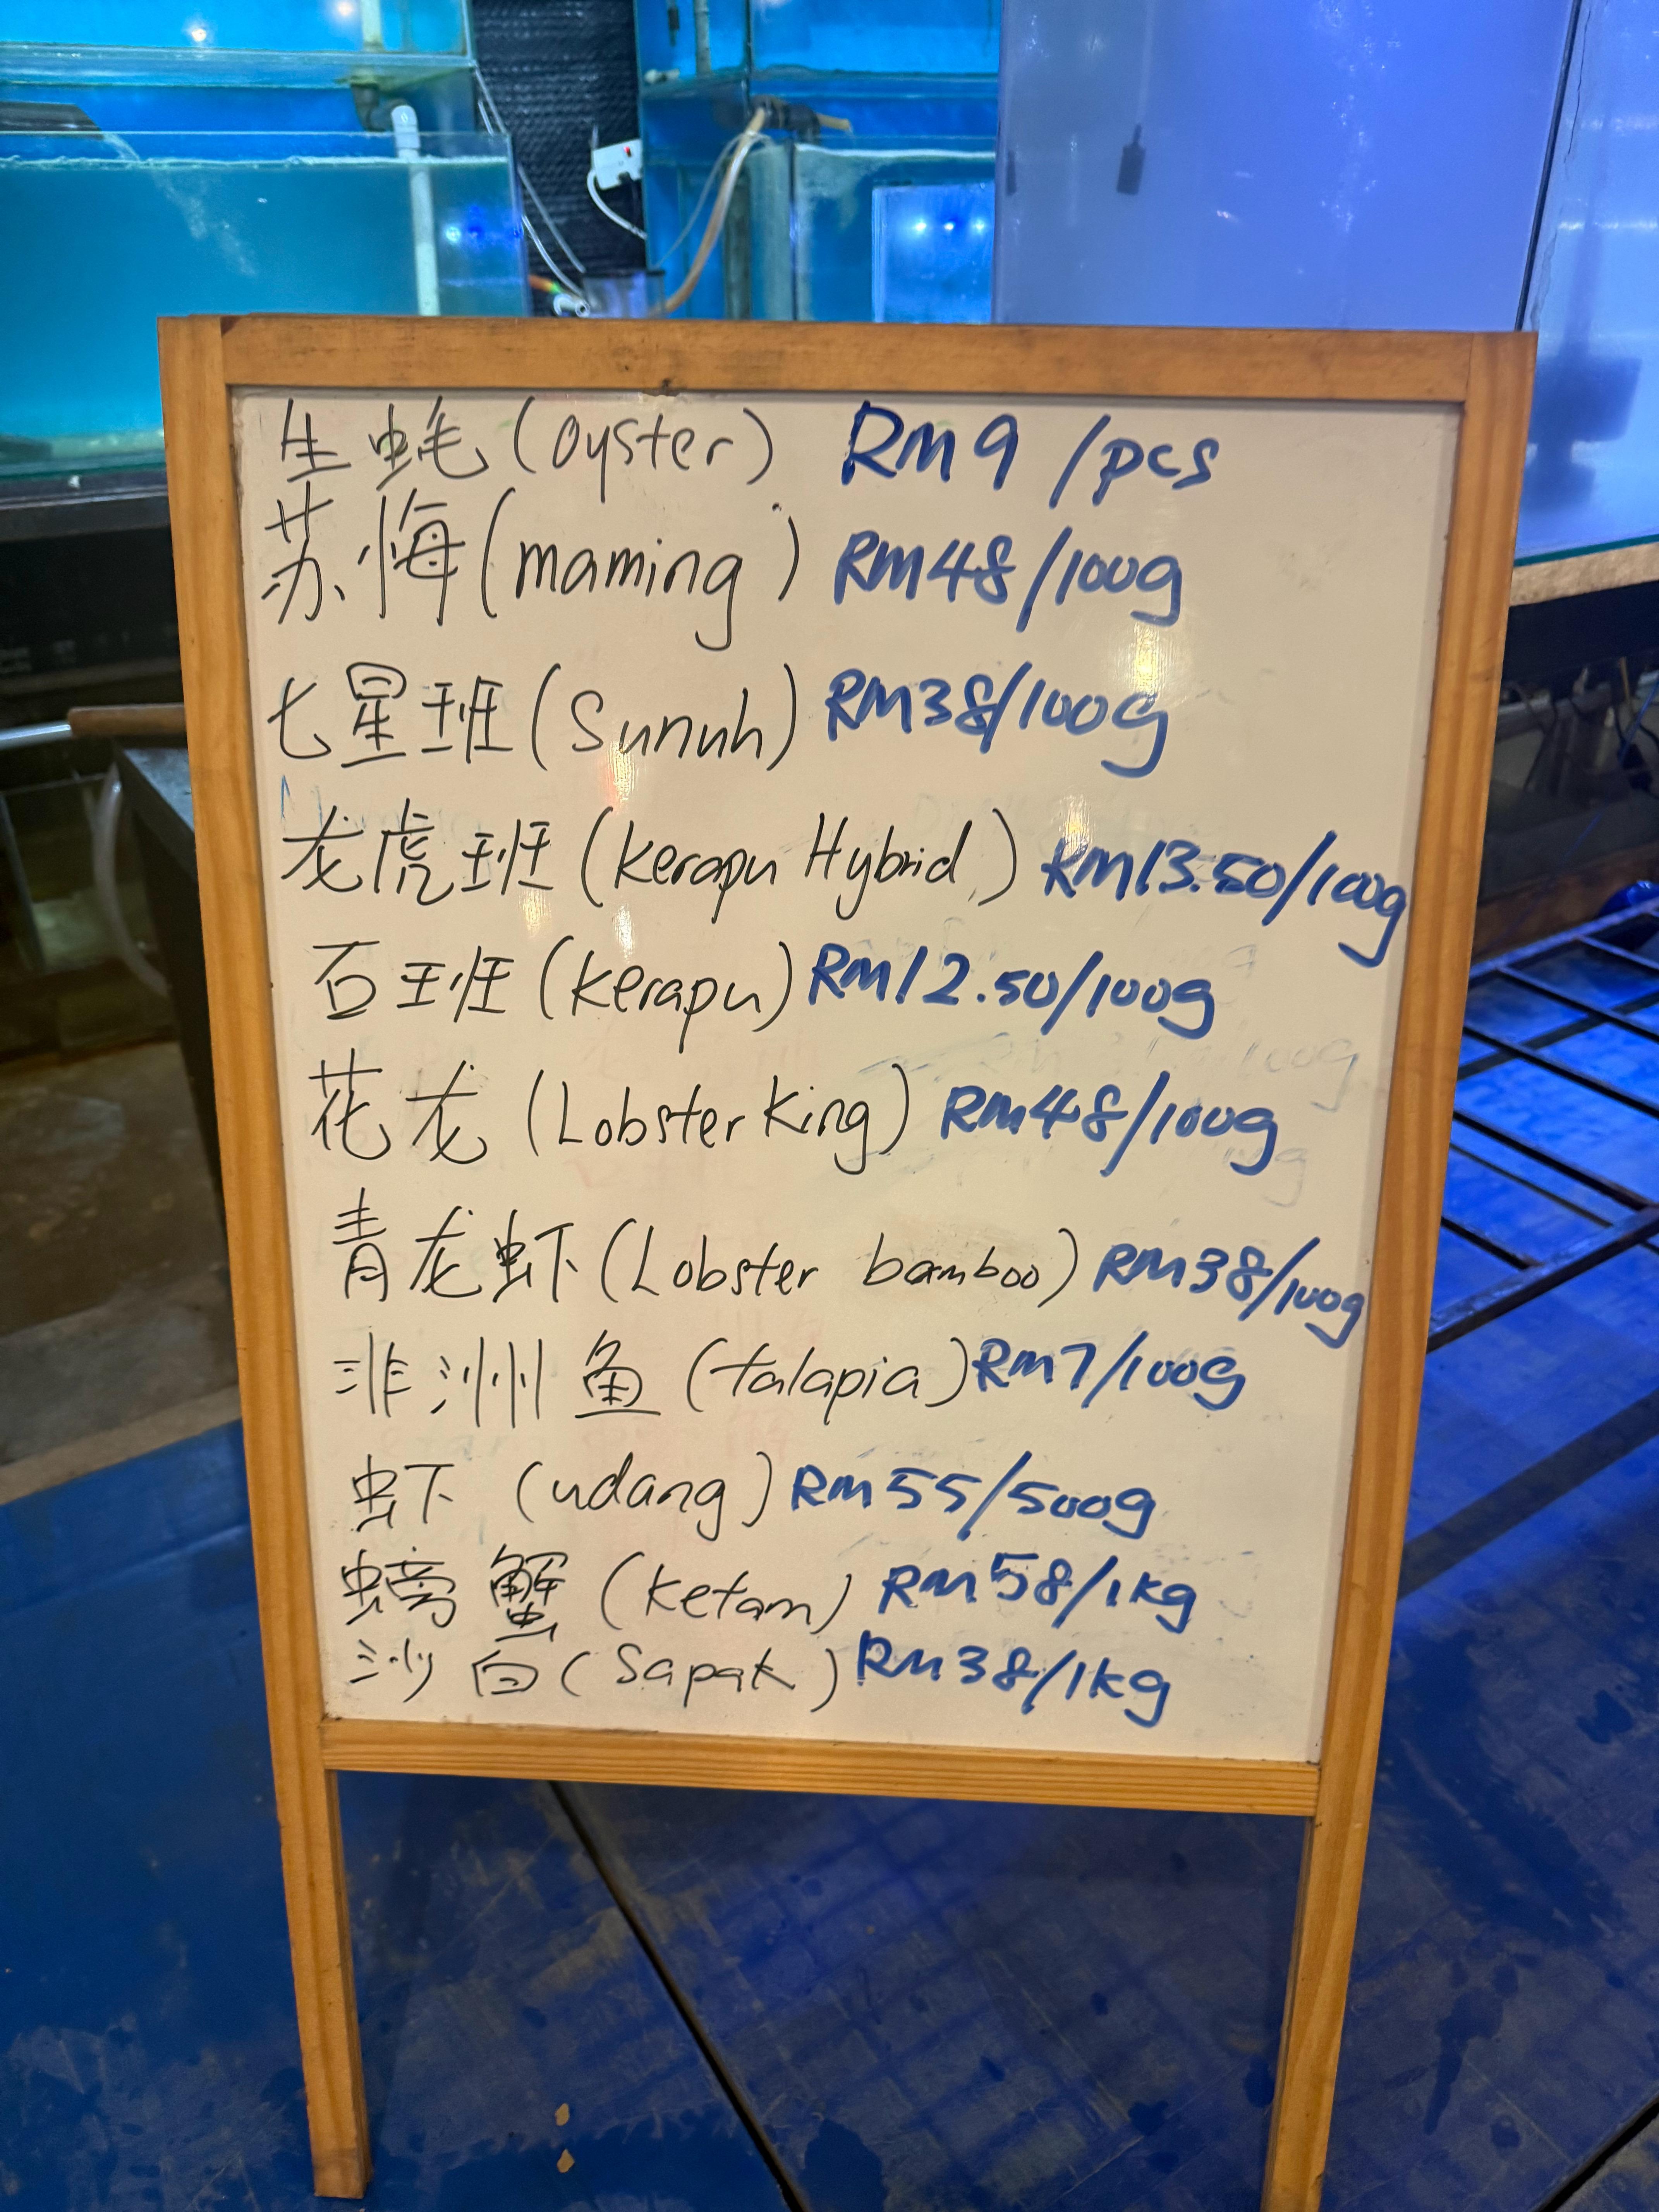 生蚝(Oyster) RM9/pcs
苏悔(maming) RM48/100g
七星班(Sunuh) RM38/100g
龙虎班(Kerapu Hybrid) RM13.50/100g
石班(Kerapu) RM12.50/100g
花龙(Lobster King) RM48/100g
青龙虾(Lobster bamboo) RM38/100g
非洲鱼(talapia) RM7/100g
虾(udang) RM55/500g
螃蟹(Ketam) RM58/1kg
沙白(Sapak) RM38/1kg